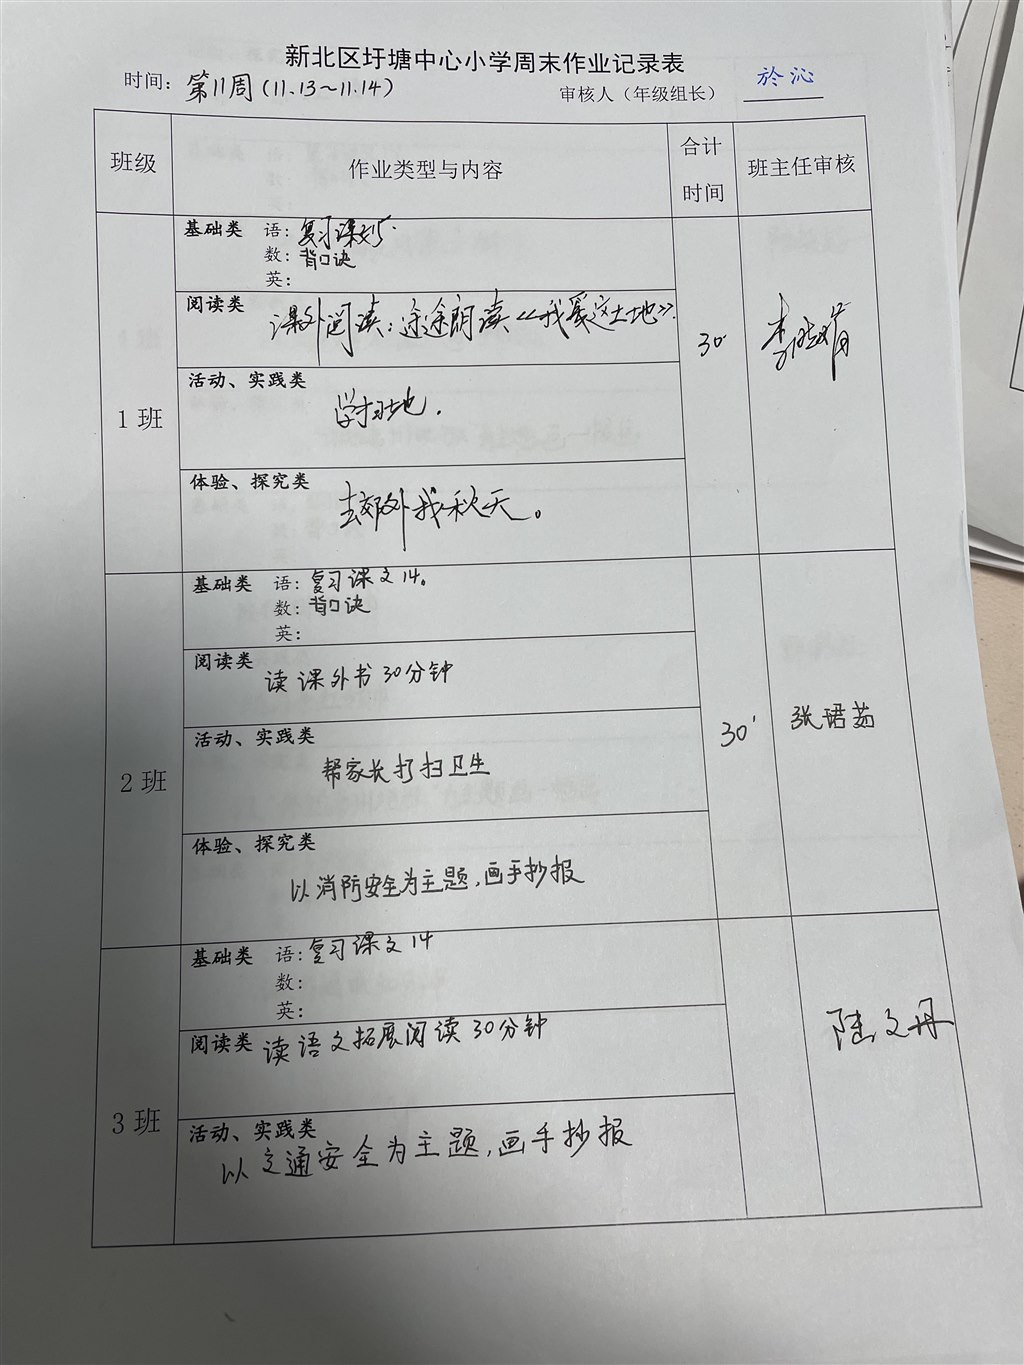 新北区圩塘中心小学周末作业记录表
时间：第11周(11.13～11.14)
审核人（年级组长） 於沁
班级 作业类型与内容 合计时间 班主任审核
1班
基础类 语：复习课文
数：背口诀
英：
阅读类
课外阅读：途途朗读《我爱这土地》.
活动、实践类
学扫地.
体验、探究类
去郊外找秋天。
30'
2班
基础类 语：复习课文14。
数：背口诀
英：
阅读类 读课外书30分钟
活动、实践类
帮家长打扫卫生
体验、探究类
以消防安全为主题,画手抄报
30' 张珺茹
3班
基础类 语：复习课文14
数：
英：
阅读类 读语文拓展阅读30分钟
活动、实践类
以交通安全为主题,画手抄报
陆文丹